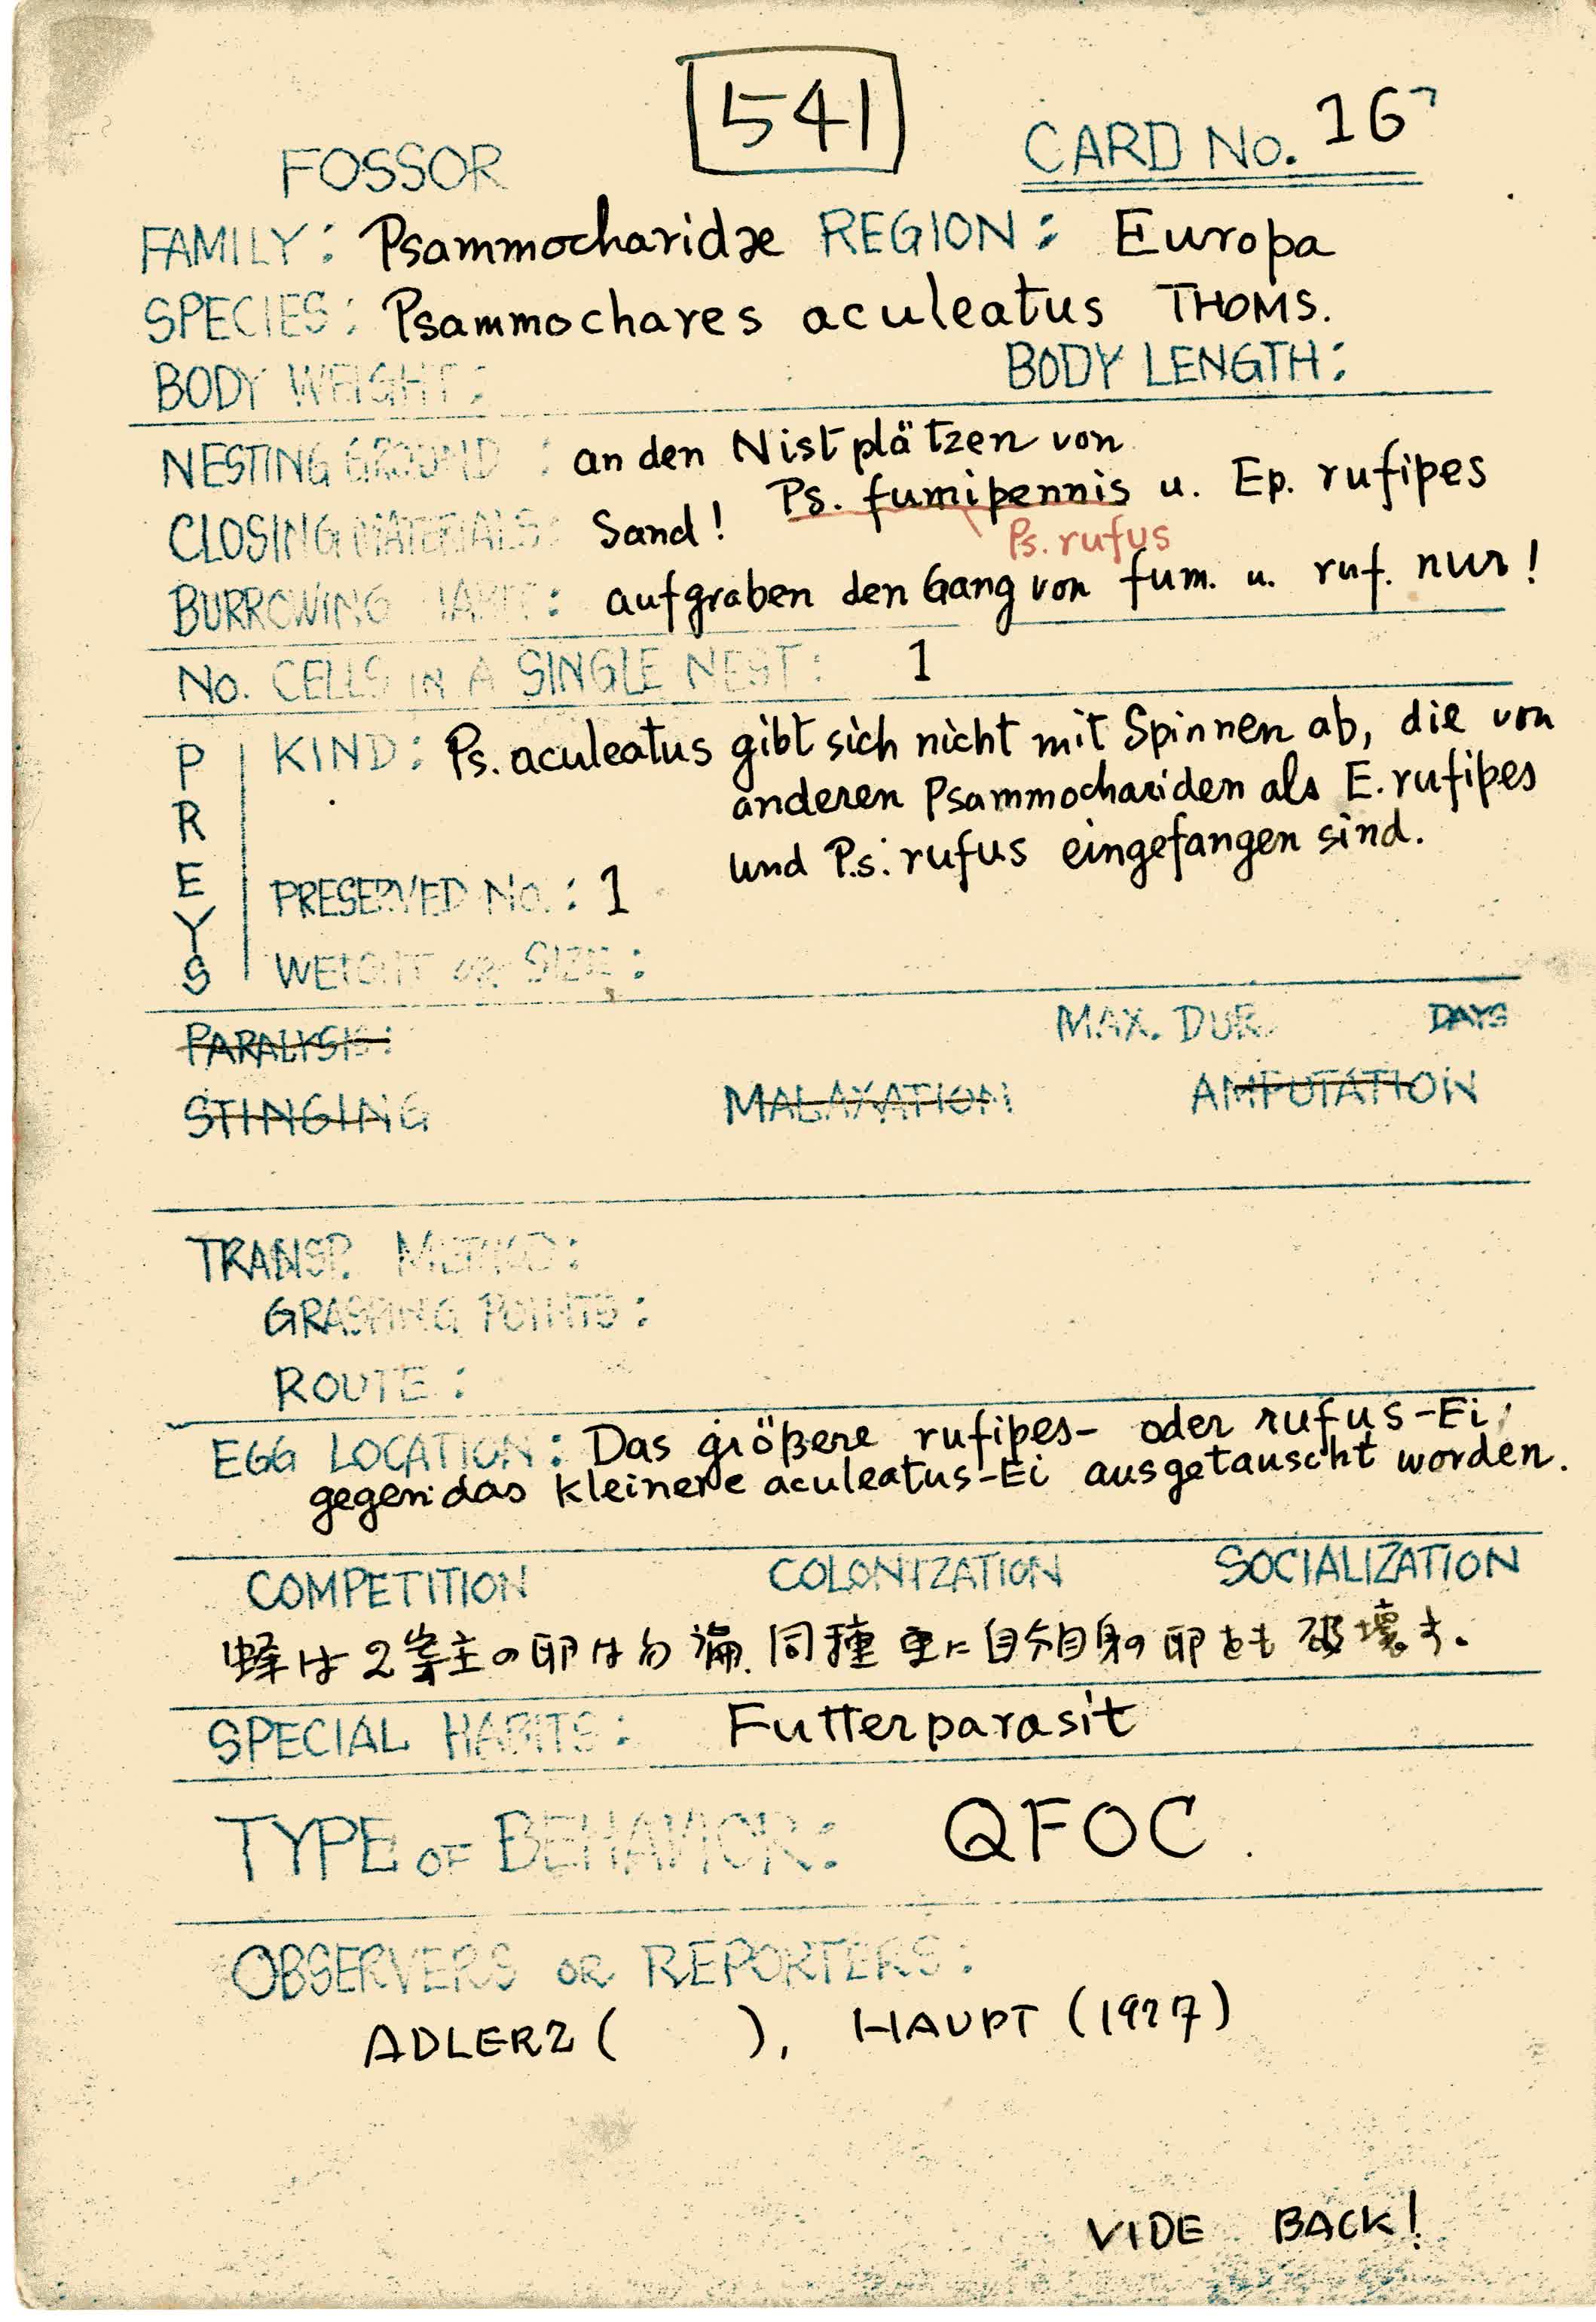 541
FOSSOR CARD No. 167
FAMILY: Psammocharidæ REGION: Europa
SPECIES: Psammochares aculeatus THOMS.
BODY WEIGHT: BODY LENGTH:
NESTING GROUND: an den Nistplätzen von
Ps. fumipennis u. Ep. rufipes
Ps. rufus
CLOSING MATERIALS: Sand!
BURROWING HABIT: aufgraben den Gang von fum. u. ruf. nur!
No. CELLS IN A SINGLE NEST: 1
PREYS
KIND: Ps. aculeatus gibt sich nicht mit Spinnen ab, die von
anderen Psammochariden als E. rufipes
und Ps. rufus eingefangen sind.
PRESERVED No.: 1
WEIGHT OR SIZE:
PARALYSIS: MAX. DUR. DAYS
STINGING MALAXATION AMPUTATION
TRANSP. METHOD:
GRASPING POINTS:
ROUTE:
EGG LOCATION: Das größere rufipes- oder rufus-Ei,
gegen das kleinere aculeatus-Ei ausgetauscht worden.
COMPETITION COLONIZATION SOCIALIZATION
蜂は2寄主の卵は勿論、同種更に自分自身の卵をも破壊す。
SPECIAL HABITS: Futterparasit
TYPE OF BEHAVIOR: QFOC.
OBSERVERS OR REPORTERS:
ADLERZ ( ), HAUPT (1927)
VIDE BACK!